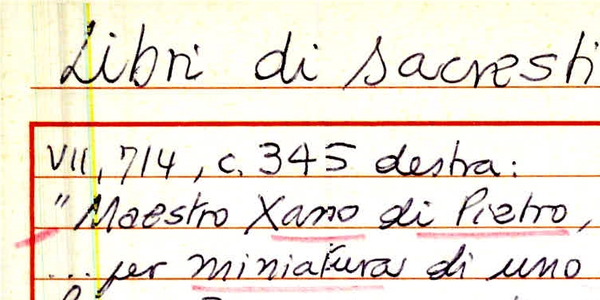 Libri di sacresti
VII, 714, c. 345 destra:
"Maestro Xano di Pietro,
... per miniatura di uno